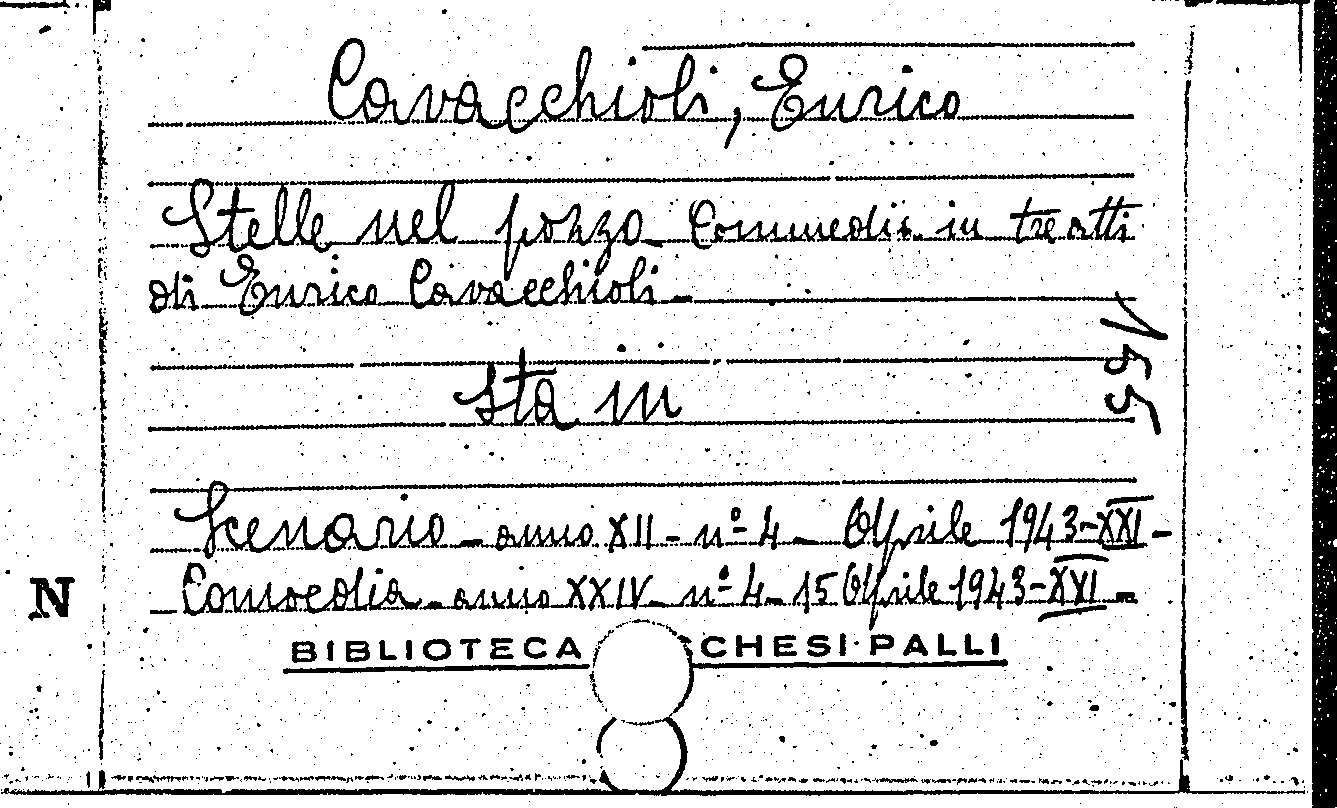 Cavacchioli, Enrico
Stelle nel pozzo - Commedia in tre atti
di Enrico Cavacchioli -
sta in
Scenario - anno XII - nº 4 - Aprile 1943-XXI -
Comoedia - anno XXIV - nº 4 - 15 Aprile 1943-XXI -
N
BIBLIOTECA SCHESI-PALLI